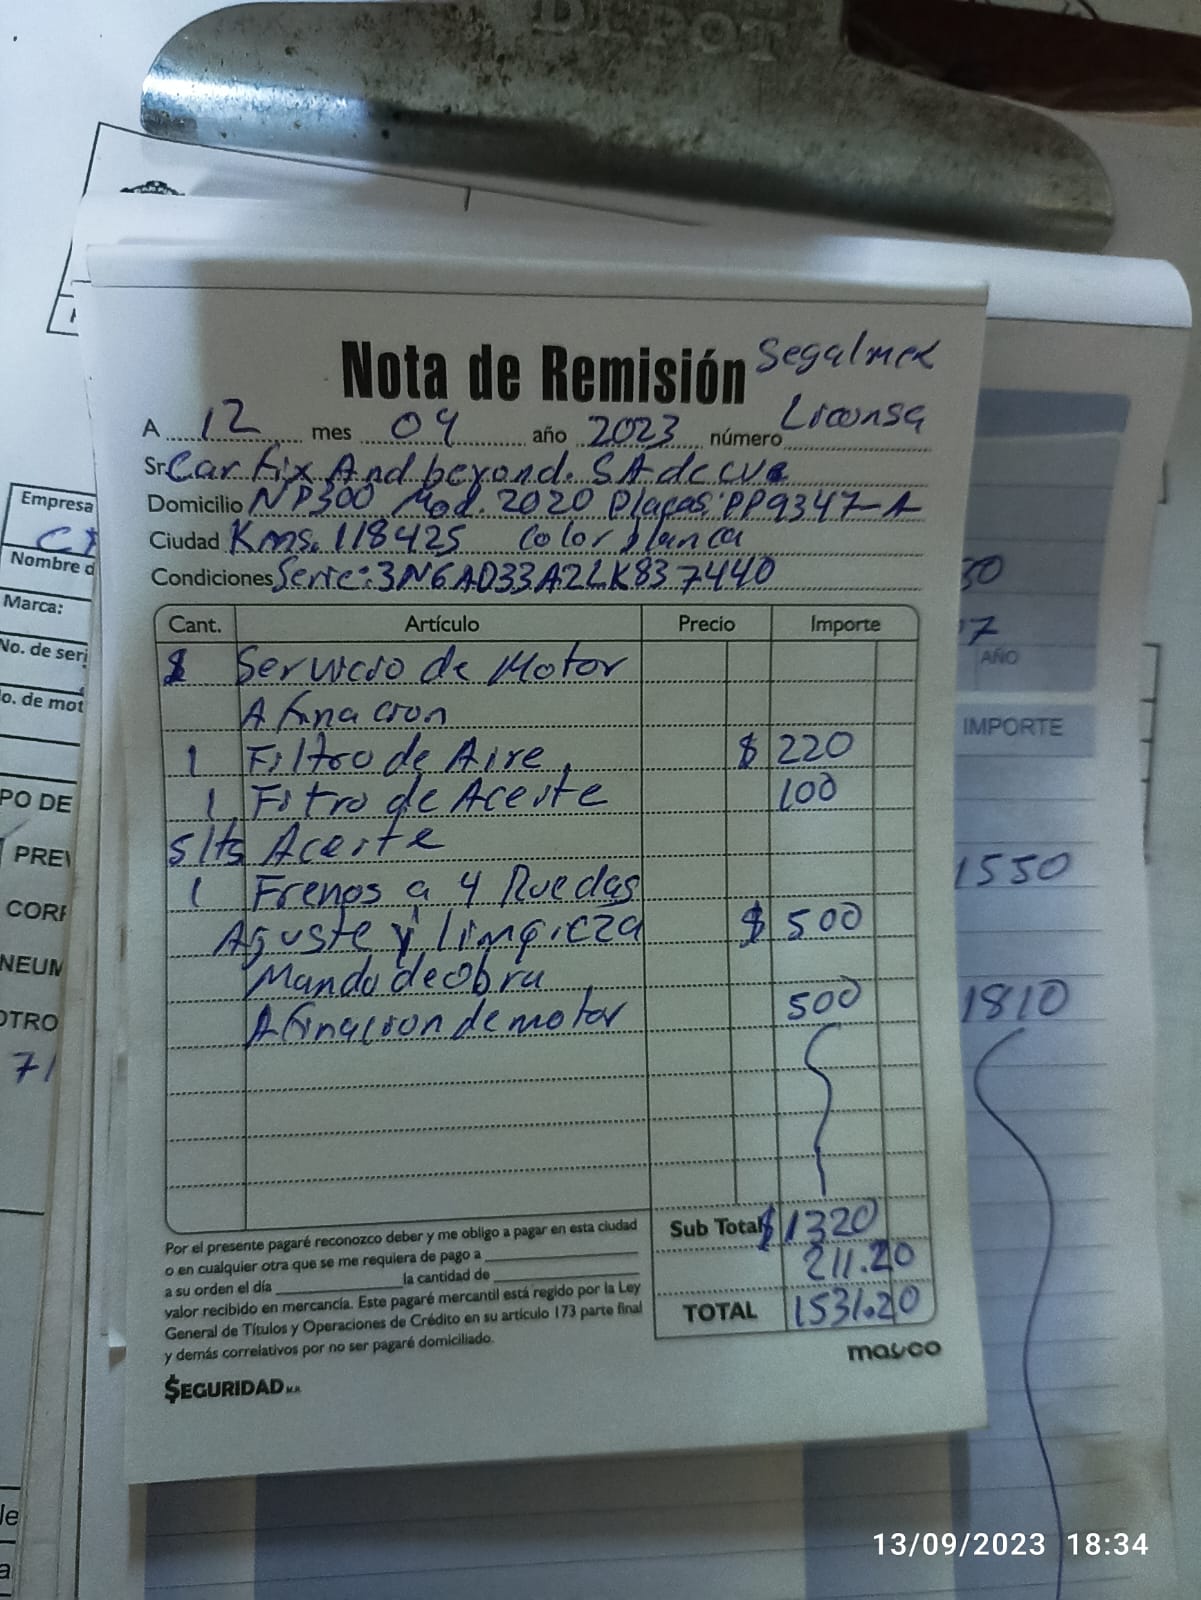 DEPOT
Nota de Remisión Segalmex
Liconsa
A 12 mes 09 año 2023 número
Sr. Car fix And beyond. SA de CV.
Domicilio NP300 Mod. 2020 Placas: PP9347-A
Ciudad Kms. 118425 Color blanca
Condiciones Serie: 3N6AD33A2LK837440
Cant. Artículo Precio Importe
1 Servicio de Motor
Afinacion
1 Filtro de Aire. $ 220
1 Fitro de Aceite 100
5 lts Aceite
1 Frenos a 4 Ruedas
Ajuste y limpieza $ 500
Mando de obra
Afinacion de motor 500
Sub Total $1320
211.20
TOTAL 1531.20
Por el presente pagaré reconozco deber y me obligo a pagar en esta ciudad
o en cualquier otra que se me requiera de pago a
a su orden el día la cantidad de
valor recibido en mercancía. Este pagaré mercantil está regido por la Ley
General de Títulos y Operaciones de Crédito en su artículo 173 parte final
y demás correlativos por no ser pagaré domiciliado.
masco
$EGURIDAD M.R.
Empresa
Nombre d
Marca:
No. de seri
o. de mot
PO DE
PREV
CORR
NEUM
OTRO
71
30
7
AÑO
IMPORTE
1550
1810
13/09/2023 18:34